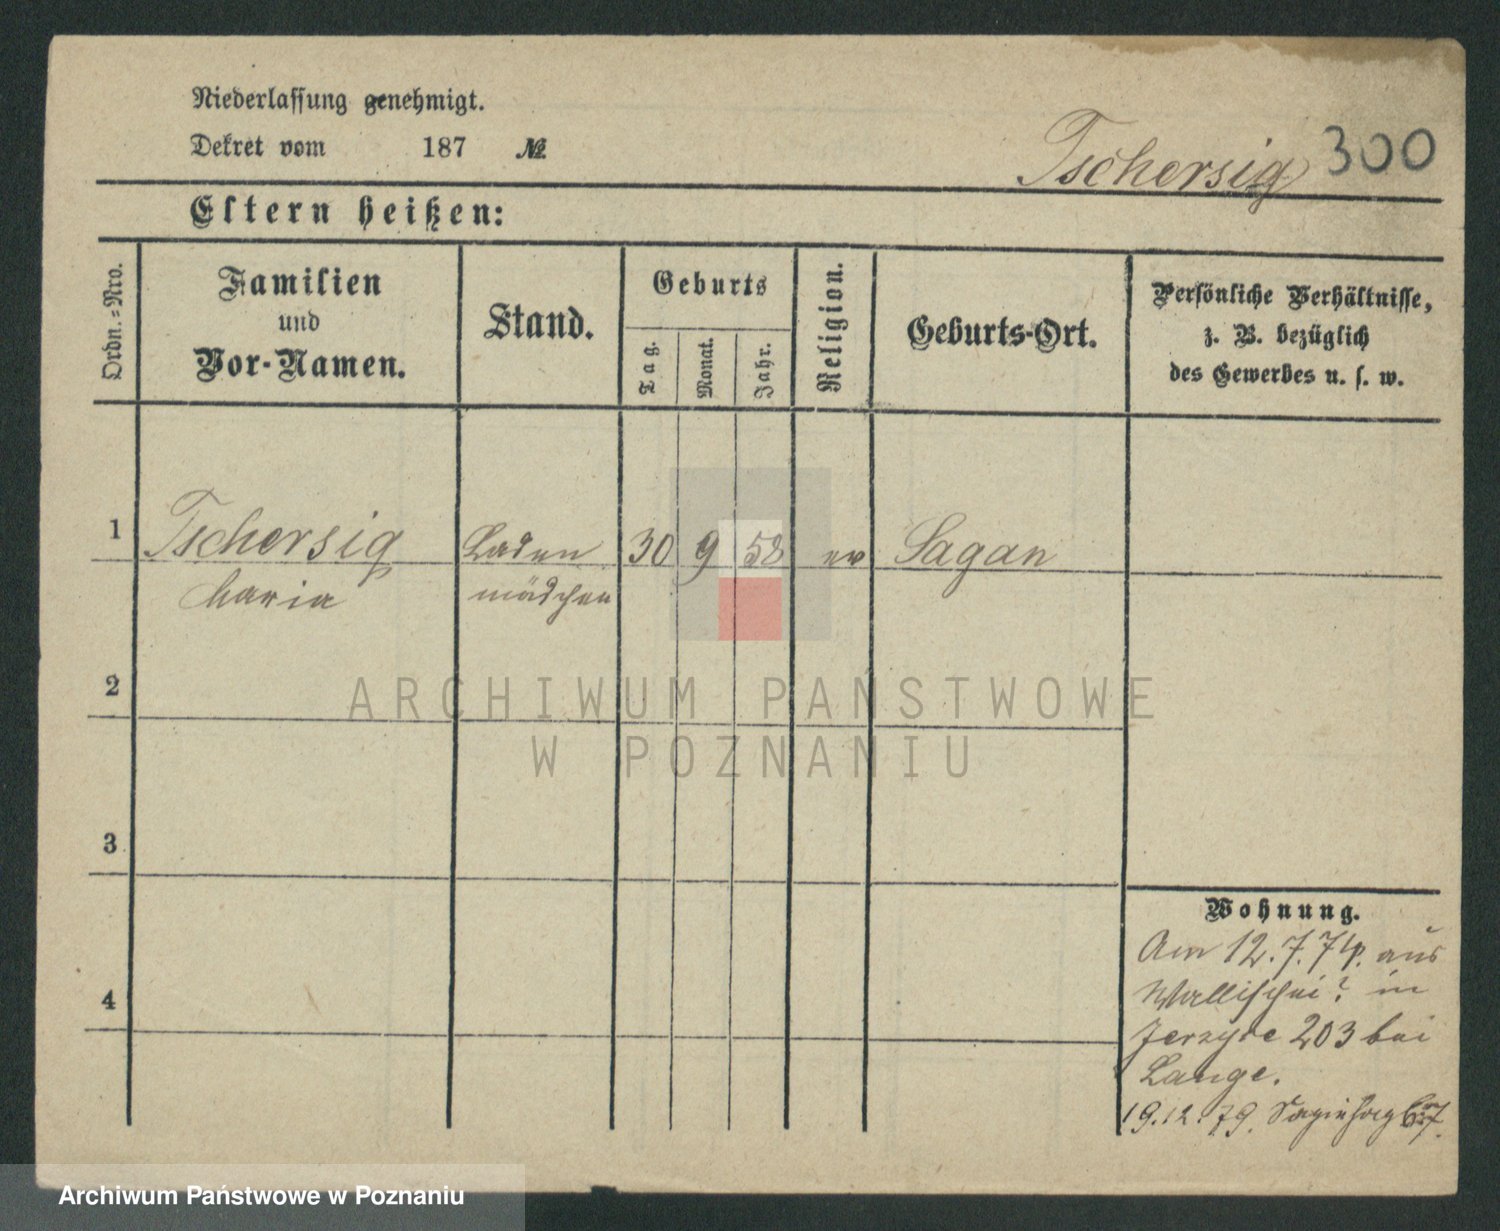 Niederlassung genehmigt.
Dekret vom 187 №
Tschersig 300
Eltern heißen:
Ordn.=Nro.
Familien
und
Vor-Namen.
Stand.
Geburts
Tag.
Monat.
Jahr.
Religion.
Geburts-Ort.
Persönliche Verhältnisse,
z. B. bezüglich
des Gewerbes u. s. w.
1 Tschersig Laden 30 9 58 ev Sagan
Maria mädchen
2
ARCHIWUM PAŃSTWOWE
W POZNANIU
3
4
Wohnung.
Am 12.7.79. aus
Wallischei ? in
Jerzyce 203 bei
Lange.
19.12.79.
Archiwum Państwowe w Poznaniu